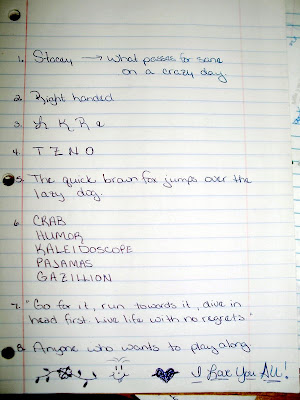 1. Stacey → What passes for sane
on a crazy day.
2. Right handed
3. K R e
4. T Z N O
5. The quick brown fox jumps over the
lazy dog.
6. CRAB
HUMOR
KALEIDOSCOPE
PAJAMAS
GAZILLION
7. "Go for it, run towards it, dive in
head first. Live life with no regrets."
8. Anyone who wants to play along.
I You All!